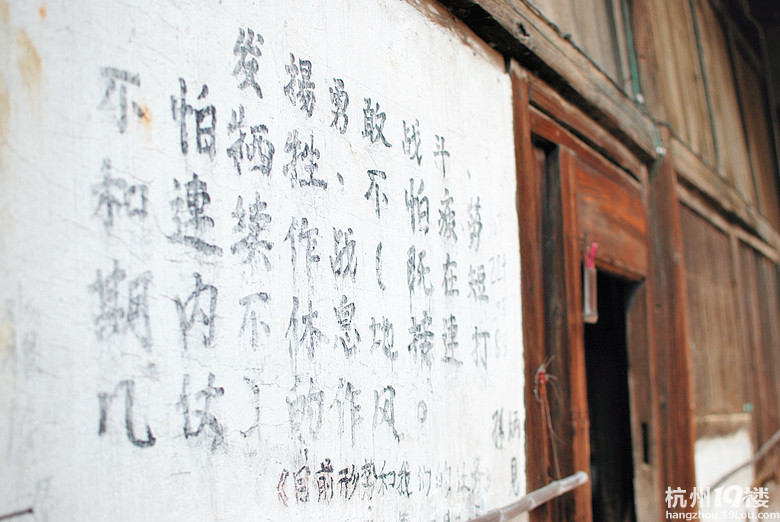 发揚勇敢战斗、
不怕牺牲、不怕疲劳
和連续作战(既在短
期内不休息地接連打
几仗)的作风。
《目前形势和我们的任务》
杭州19楼
hangzhou.19lou.com